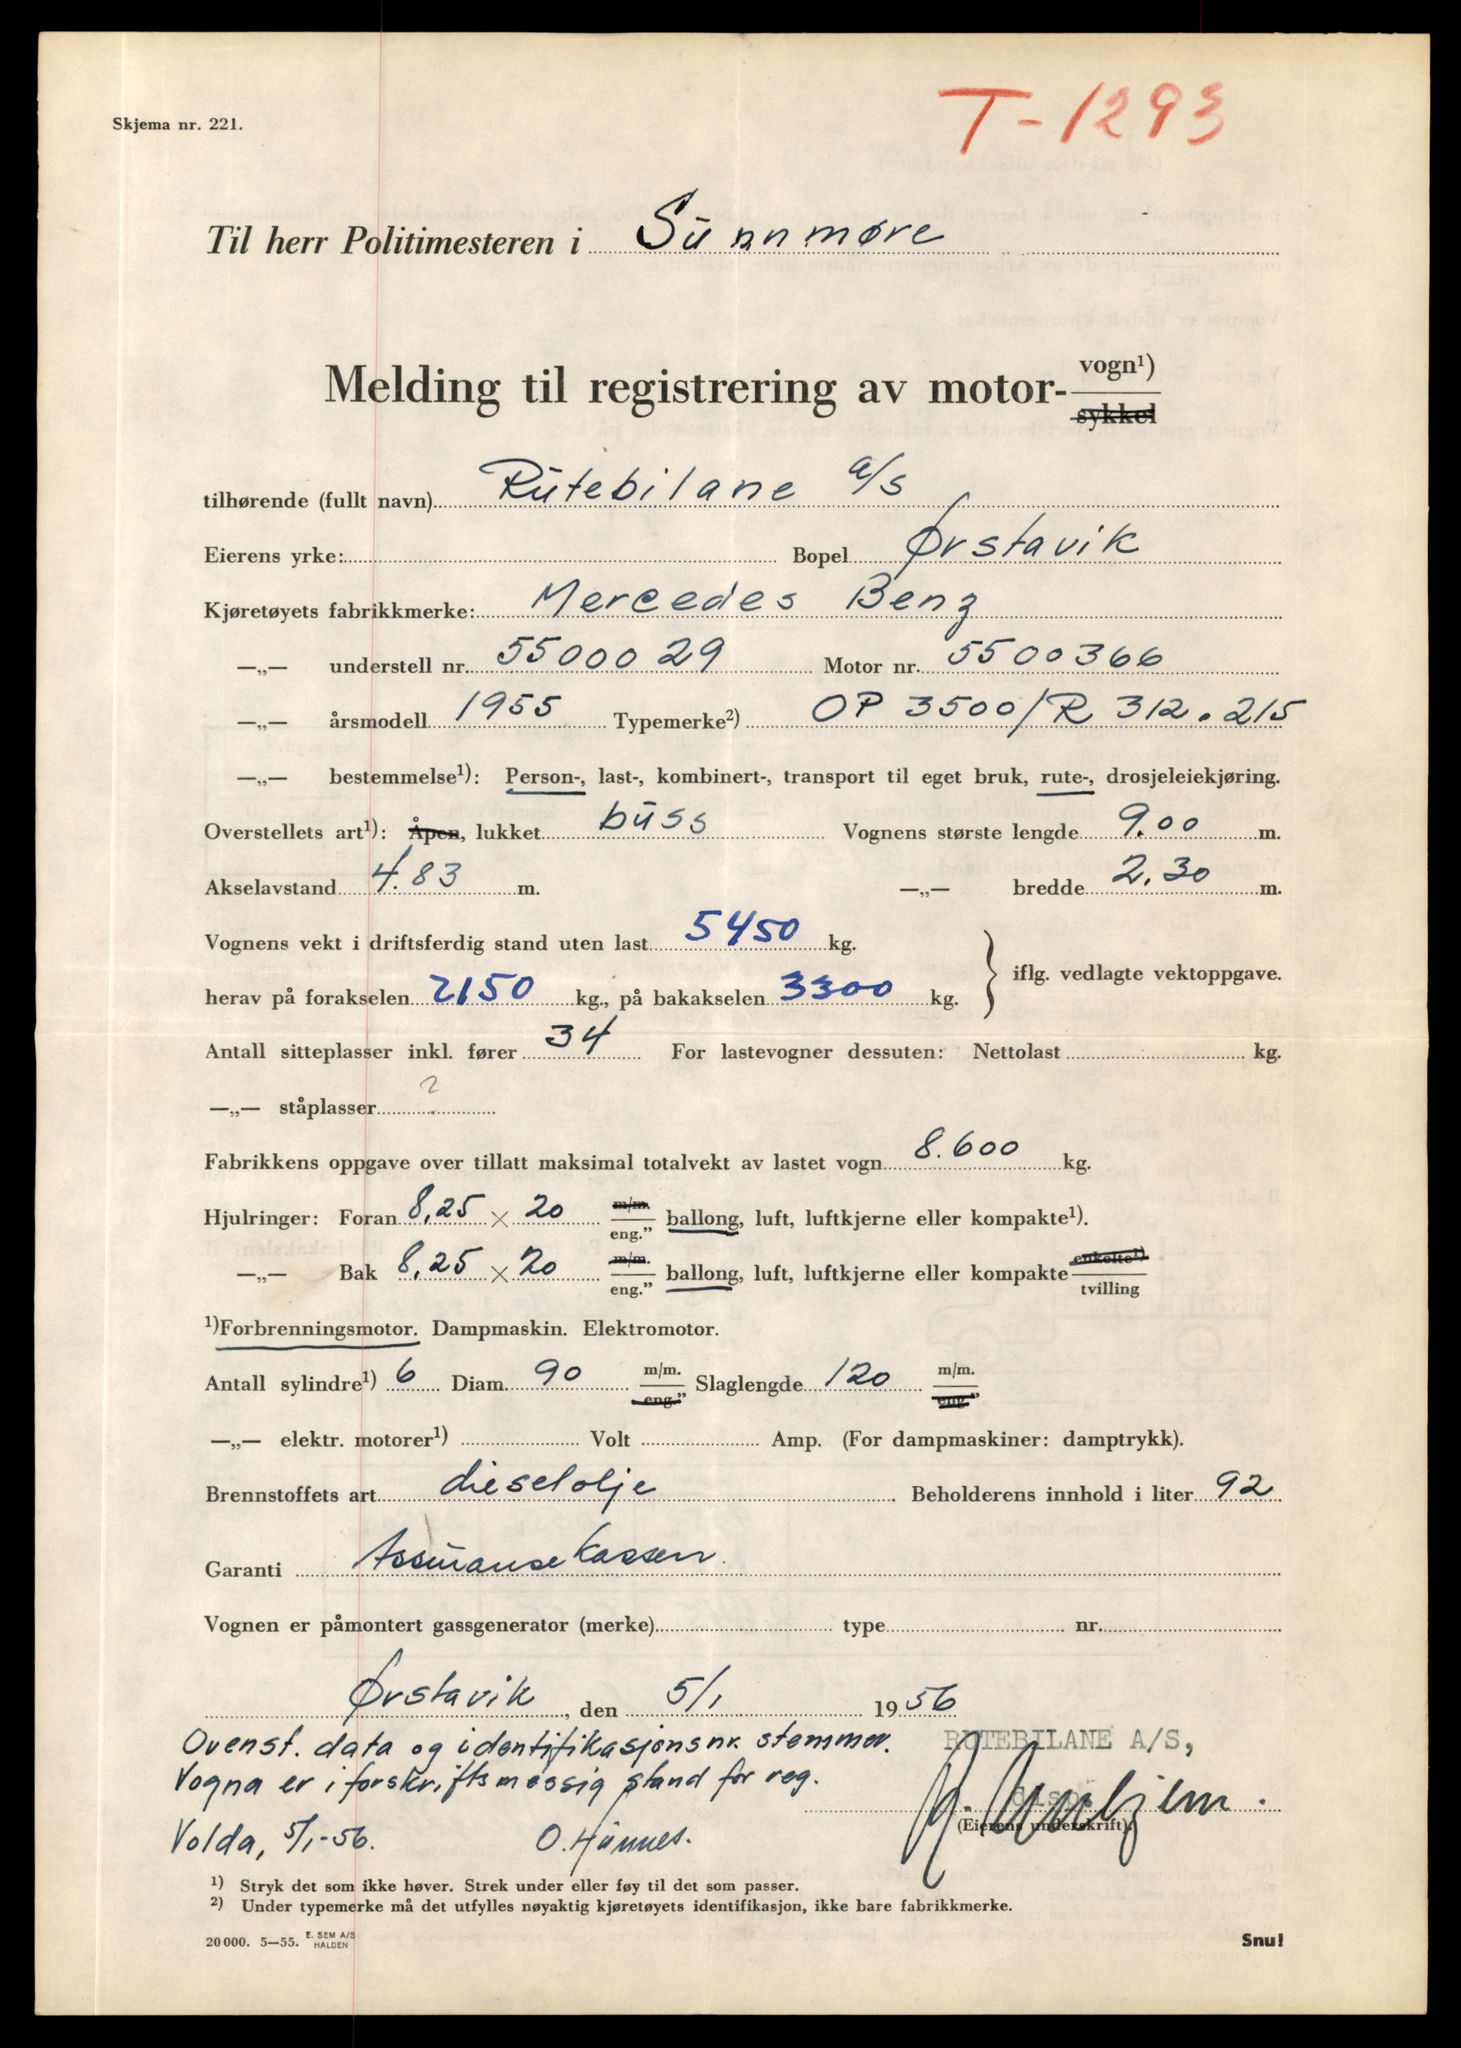 T-1293
Skjema nr. 221.
Til herr Politimesteren i Sunnmøre
Melding til registrering av motor- vogn¹) sykkel
tilhørende (fullt navn) Rutebilane a/s
Eierens yrke: Bopel Ørstavik
Kjøretøyets fabrikkmerke: Mercedes Benz
—„— understell nr. 5500029 Motor nr. 5500366
—„— årsmodell 1955 Typemerke²) OP 3500/R 312.215
—„— bestemmelse¹): Person-, last-, kombinert-, transport til eget bruk, rute-, drosjeleiekjøring.
Overstellets art¹): Åpen, lukket buss Vognens største lengde 9.00 m.
Akselavstand 4.83 m. —„— bredde 2.30 m.
Vognens vekt i driftsferdig stand uten last 5450 kg.
herav på forakselen 2150 kg., på bakakselen 3300 kg. } iflg. vedlagte vektoppgave.
Antall sitteplasser inkl. fører 34 For lastevogner dessuten: Nettolast kg.
—„— ståplasser ?
Fabrikkens oppgave over tillatt maksimal totalvekt av lastet vogn 8.600 kg.
Hjulringer: Foran 8,25 × 20 m/m. eng.” ballong, luft, luftkjerne eller kompakte¹).
—„— Bak 8,25 × 20 m/m. eng.” ballong, luft, luftkjerne eller kompakte enkelte¹) tvilling
¹)Forbrenningsmotor. Dampmaskin. Elektromotor.
Antall sylindre¹) 6 Diam. 90 m/m. eng.” Slaglengde 120 m/m. eng.”
—„— elektr. motorer¹) Volt Amp. (For dampmaskiner: damptrykk).
Brennstoffets art dieselolje Beholderens innhold i liter 92
Garanti Assuransekassen.
Vognen er påmontert gassgenerator (merke) type nr.
Ørstavik, den 5/1 1956
Ovenst. data og identifikasjonsnr. stemmer. RUTEBILANE A/S,
Vogna er i forskriftsmessig stand for reg.
disp.
(Eierens underskrift).
Volda, 5/1-56.
¹) Stryk det som ikke høver. Strek under eller føy til det som passer.
²) Under typemerke må det utfylles nøyaktig kjøretøyets identifikasjon, ikke bare fabrikkmerke.
20 000. 5—55. E. SEM A/S HALDEN Snu!